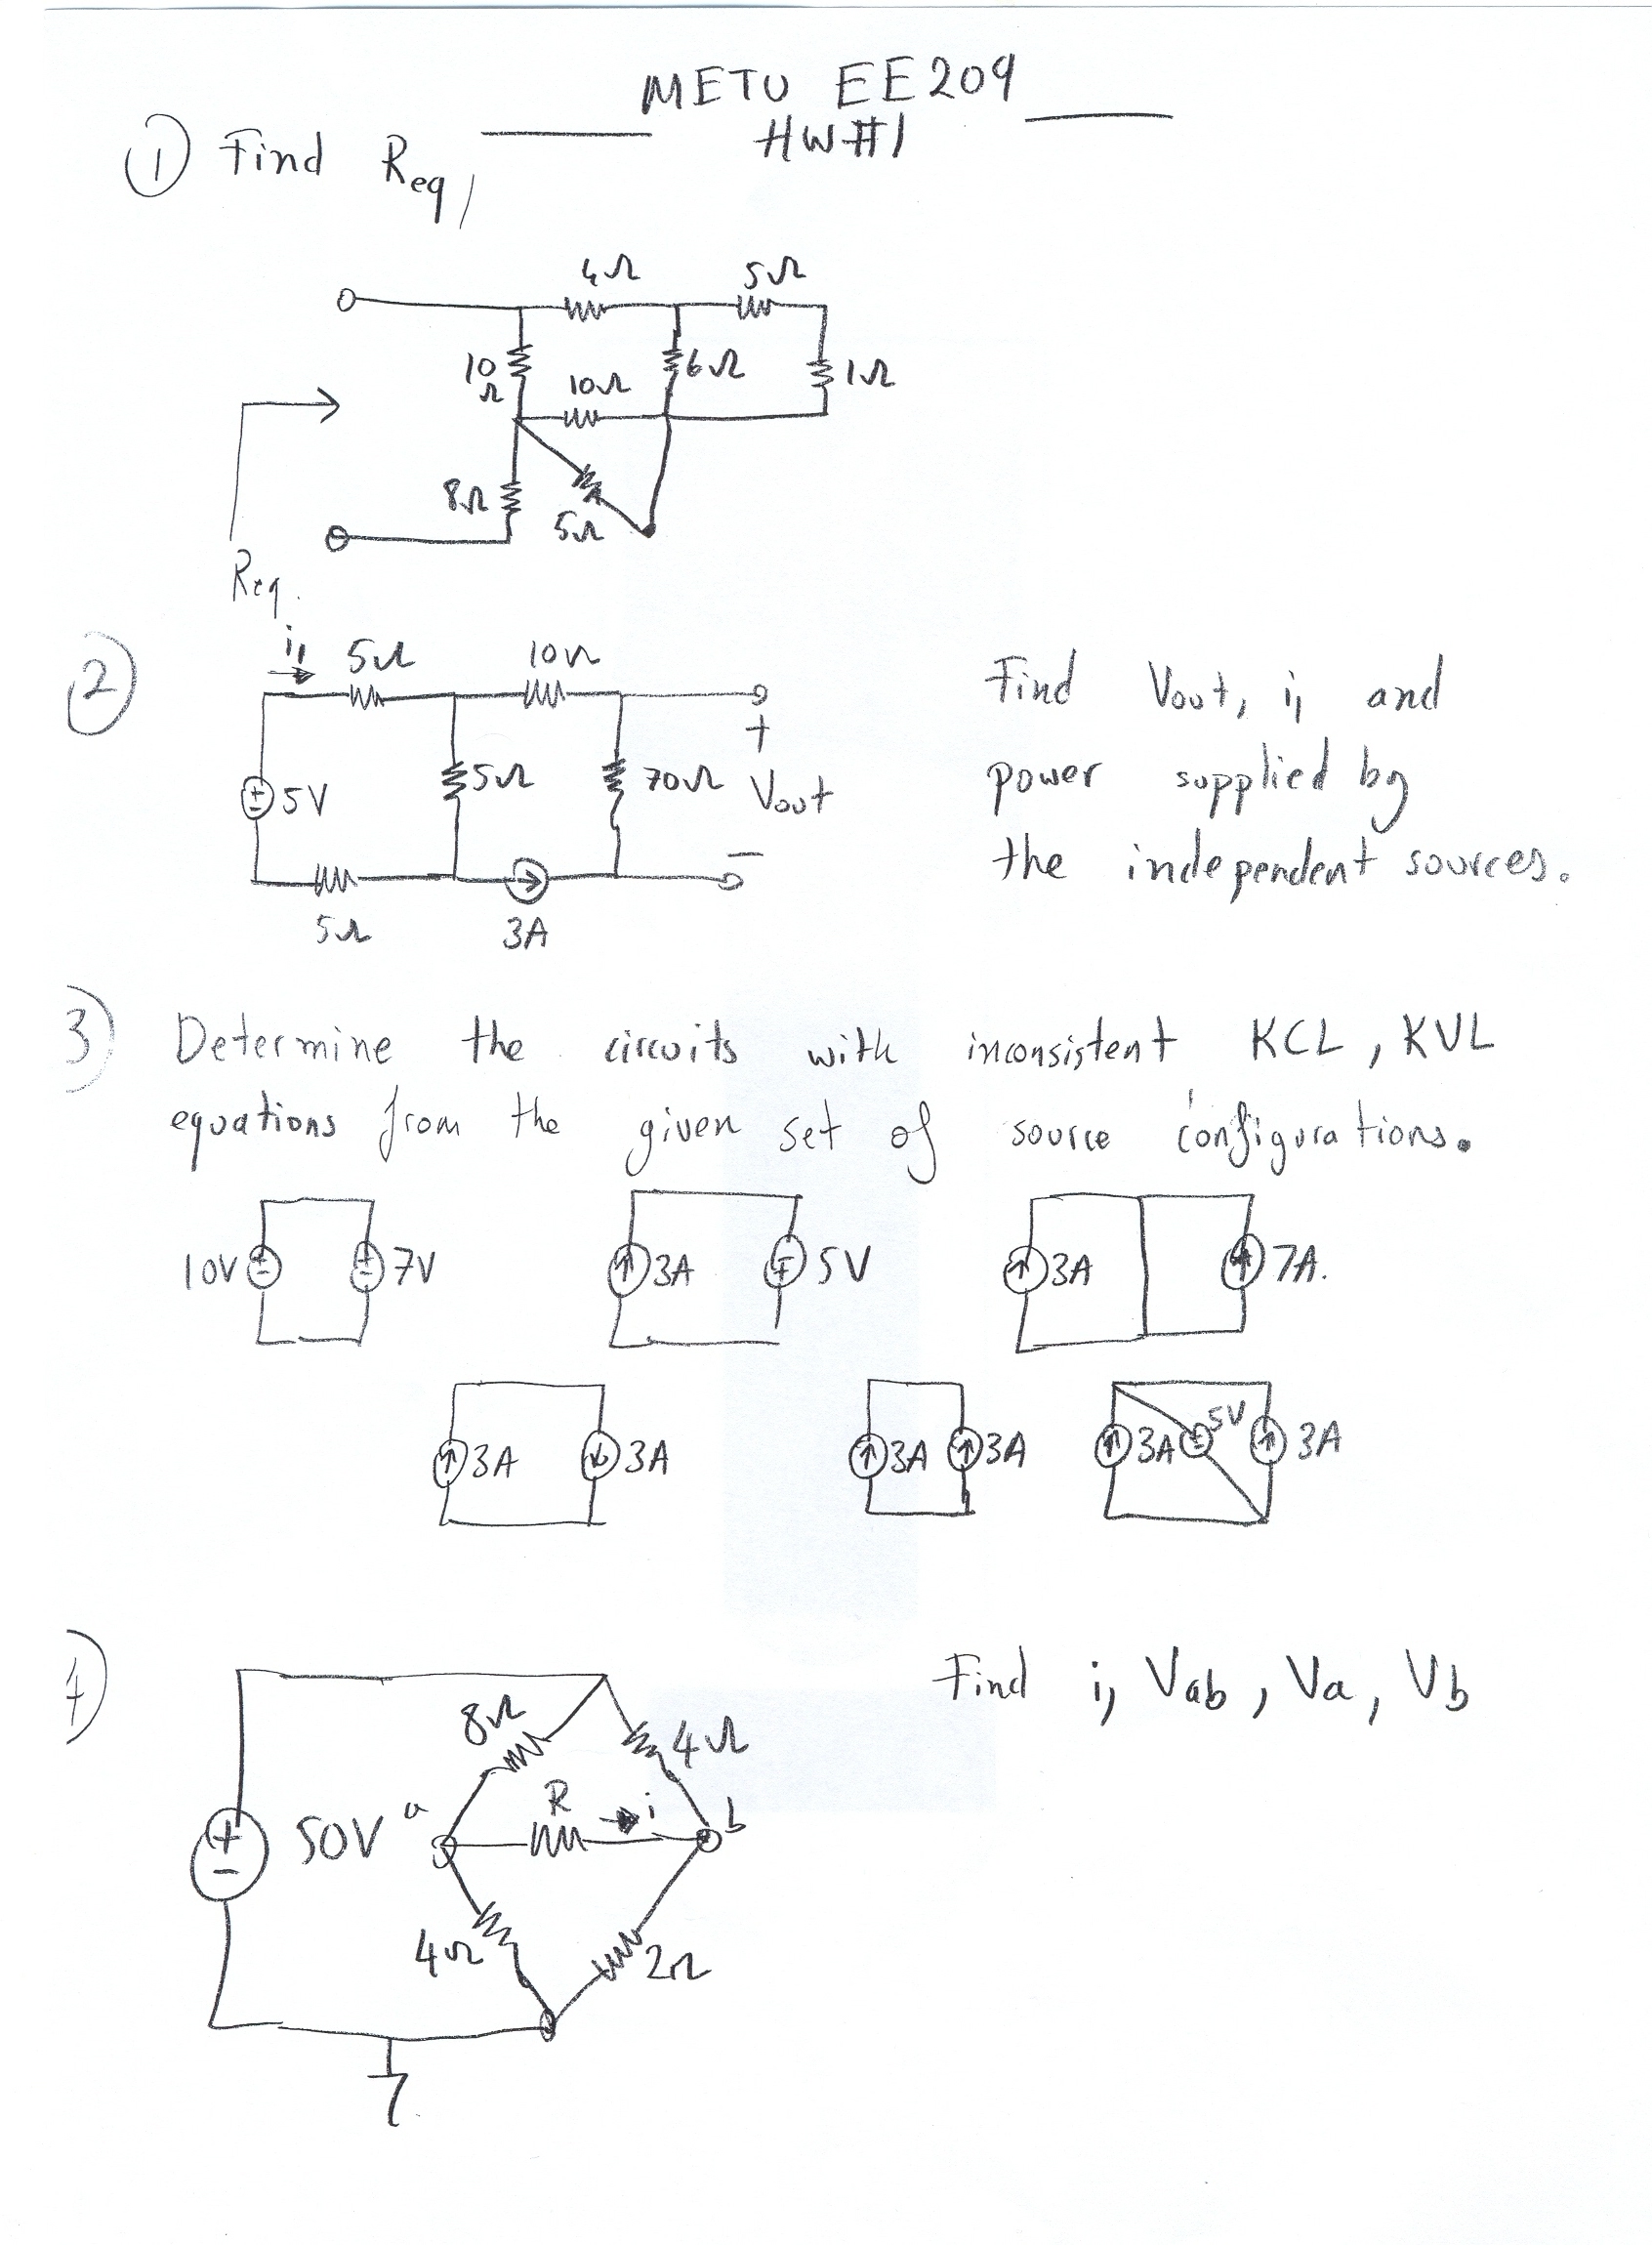 METU EE209
HW#1
① Find Req,
4Ω 5Ω
10Ω 10Ω 6Ω 1Ω
8Ω 5Ω
Req.
②
i₁ 5Ω 10Ω
5V 5Ω 70Ω + Vout −
5Ω 3A
Find Vout, i₁ and
power supplied by
the independent sources.
3) Determine the circuits with inconsistent KCL, KVL
equations from the given set of source configurations.
10V 7V 3A 5V 3A 7A.
3A 3A 3A 3A 3A 5V 3A
4)
Find i, Vab, Va, Vb
8Ω 4Ω
50V a R i b
4Ω 2Ω